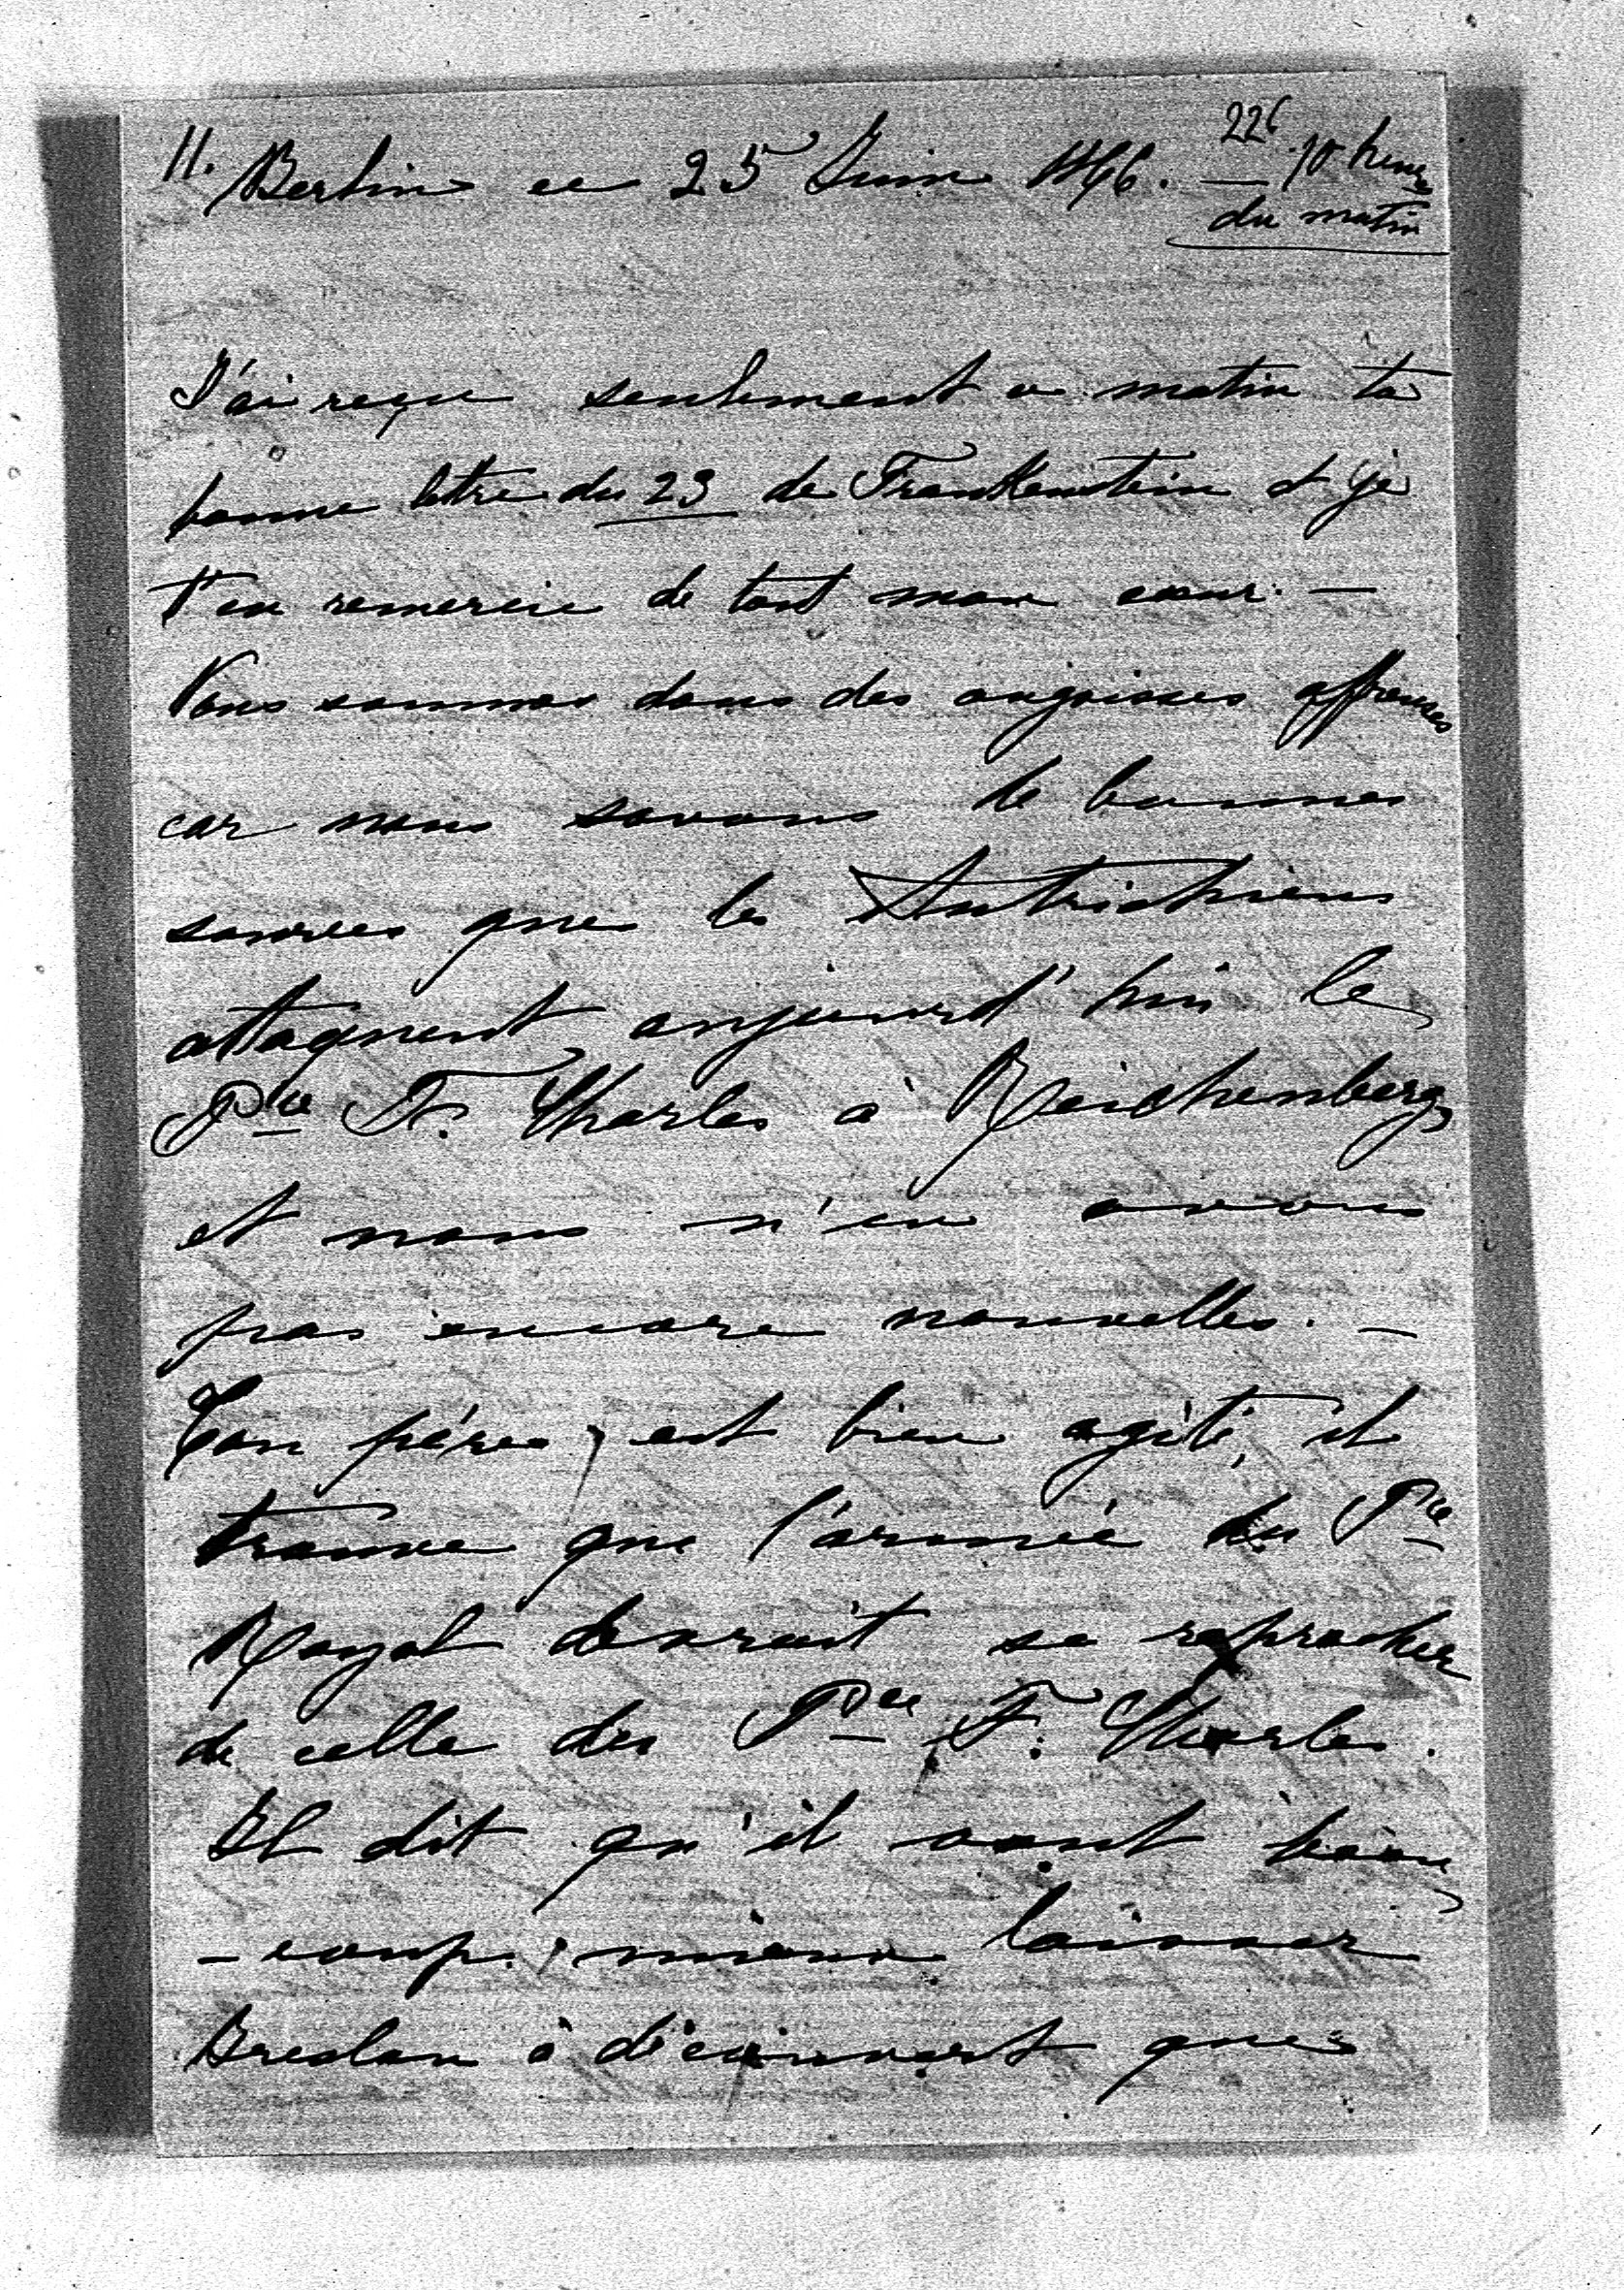 11. Berlin ce 25 Juin 1866. — 10 heures
226
du matin
J'ai reçu seulement ce matin ta
bonne lettre du 23 de Frankenstein et je
t'en remercie de tout mon coeur. —
Nous sommes dans des angoisses affreuses
car nous savons de bonnes
sources que les Autrichiens
attaquent aujourd'hui le
Pce F. Charles à Reichenberg
et nous n'en avons
pas encore nouvelles. —
Ton père, est bien agité, il
trouve que l'armée du Pce
Royal devrait se rapprocher
de celle du Pce F. Charles.
Il dit qu'il vaut beau
- coup mieux laisser
Breslau à découvert que